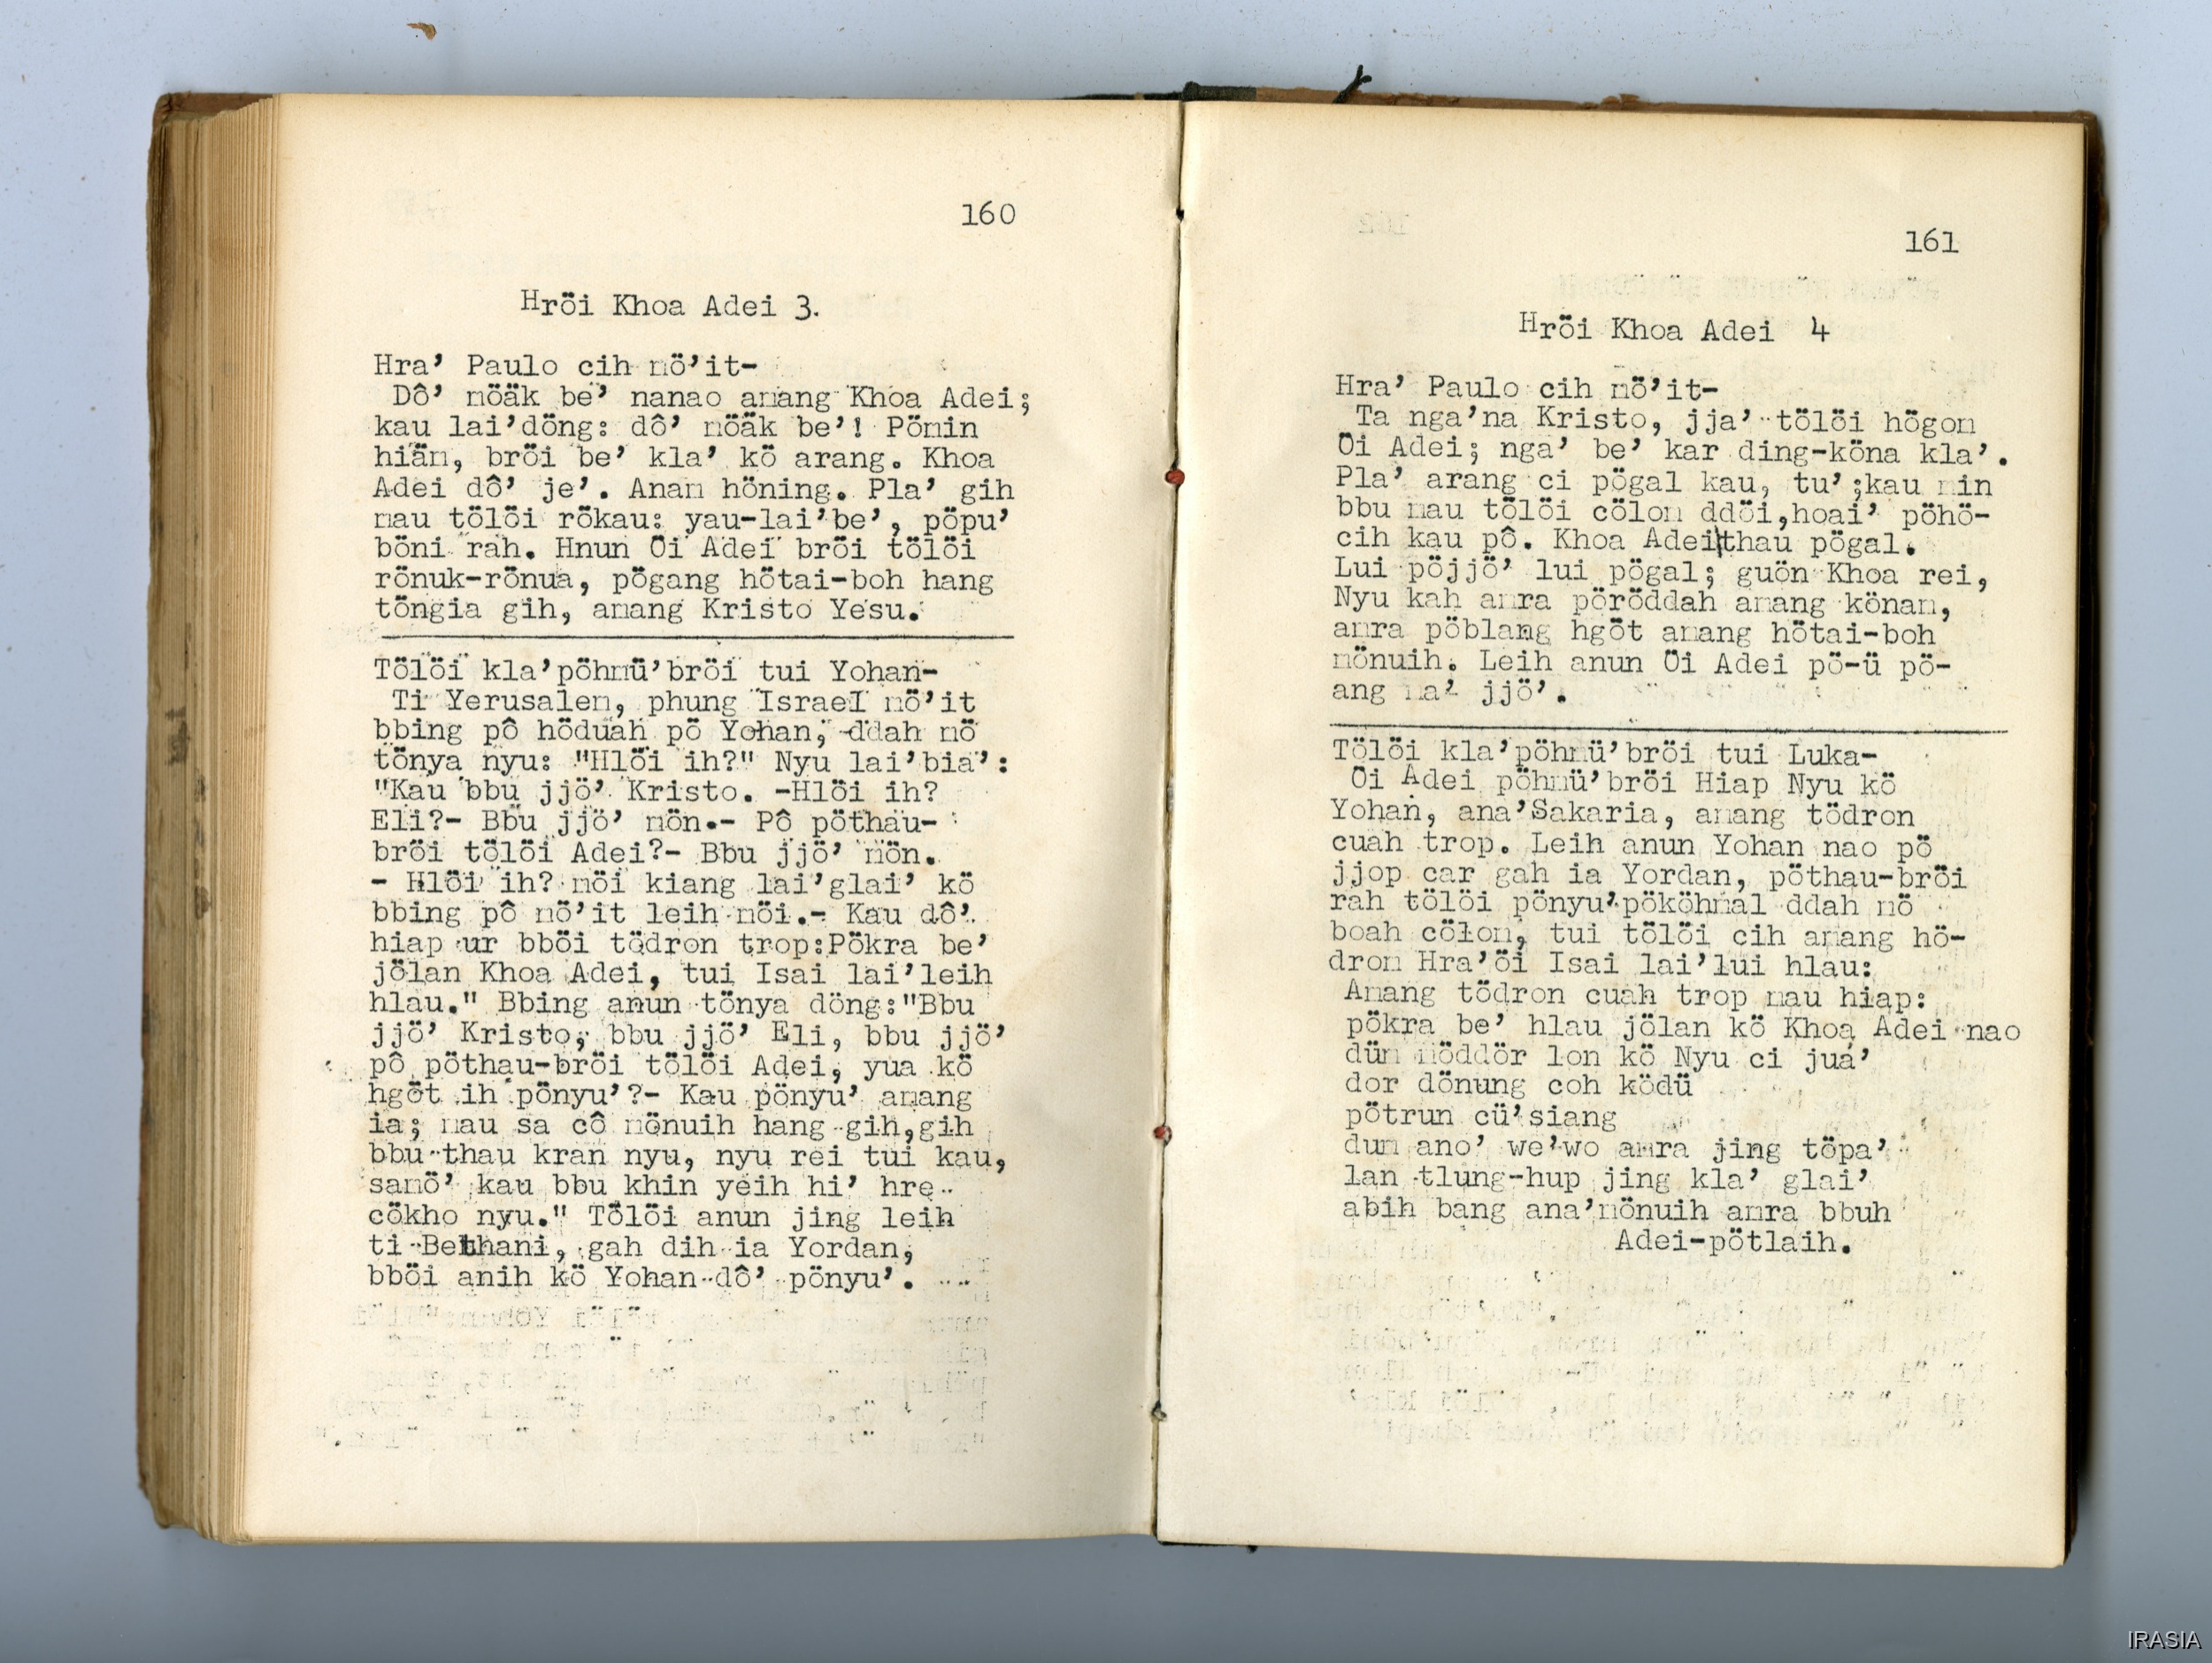 160
Hröi Khoa Adei 3.
Hra’ Paulo cih mö’it-
Dô’ möäk be’ nanao amang Khoa Adei;
kau lai’döng: dô’ möäk be’! Pömin
hiäm, bröi be’ kla’ kö arang. Khoa
Adei dô’ je’. Anam höning. Pla’ gih
mau tölöi rökau: yau-lai’be’, pöpu’
böni rah. Hnun Öi Adei bröi tölöi
rönuk-rönua, pögang hötai-boh hang
töngia gih, amang Kristo Yesu.
Tölöi kla’pöhmü’bröi tui Yohan-
Ti Yerusalem, phung Israel mö’it
bbing pô höduah pö Yohan, ddah mö
tönya nyu: "Hlöi ih?" Nyu lai’bia’:
"Kau bbu jjö’ Kristo. -Hlöi ih?
Eli?- Bbu jjö’ mön.- Pô pöthau-
bröi tölöi Adei?- Bbu jjö’ mön.
- Hlöi ih? möi kiang lai’glai’ kö
bbing pô mö’it leih möi.- Kau dô’
hiap ur bböi tödron trop:Pökra be’
jölan Khoa Adei, tui Isai lai’leih
hlau." Bbing anun tönya döng:"Bbu
jjö’ Kristo; bbu jjö’ Eli, bbu jjö’
pô pöthau-bröi tölöi Adei, yua kö
hgöt ih pönyu’?- Kau pönyu’ amang
ia; mau sa cô mönuih hang gih,gih
bbu thau kran nyu, nyu rei tui kau,
samö’ kau bbu khin yeih hi’ hre
cökho nyu." Tölöi anun jing leih
ti Bethani, gah dih ia Yordan,
bböi anih kö Yohan dô’ pönyu’.
161
Hröi Khoa Adei 4
Hra’ Paulo cih mö’it-
Ta nga’na Kristo, jja’ tölöi högom
Öi Adei; nga’ be’ kar ding-köna kla’.
Pla’ arang ci pögal kau, tu’;kau min
bbu mau tölöi cölom ddöi,hoai’ pöhö-
cih kau pô. Khoa Adei thau pögal.
Lui pöjjö’ lui pögal; guön Khoa rei,
Nyu kah amra pöröddah amang könam,
amra pöblang hgöt amang hötai-boh
mönuih. Leih anun Öi Adei pö-ü pö-
ang ma’ jjö’.
Tölöi kla’pöhmü’bröi tui Luka-
Öi Adei pöhmü’bröi Hiap Nyu kö
Yohan, ana’Sakaria, amang tödron
cuah trop. Leih anun Yohan nao pö
jjop car gah ia Yordan, pöthau-bröi
rah tölöi pönyu’pököhmal ddah mö
boah cölom, tui tölöi cih amang hö-
drom Hra’öi Isai lai’lui hlau:
Amang tödron cuah trop mau hiap:
pökra be’ hlau jölan kö Khoa Adei nao
düm möddör lon kö Nyu ci jua’
dor dönung coh ködü
pötrun cü’siang
dum ano’ we’wo amra jing töpa’
lan tlung-hup jing kla’ glai’
abih bang ana’mönuih amra bbuh
Adei-pötlaih.
IRASIA